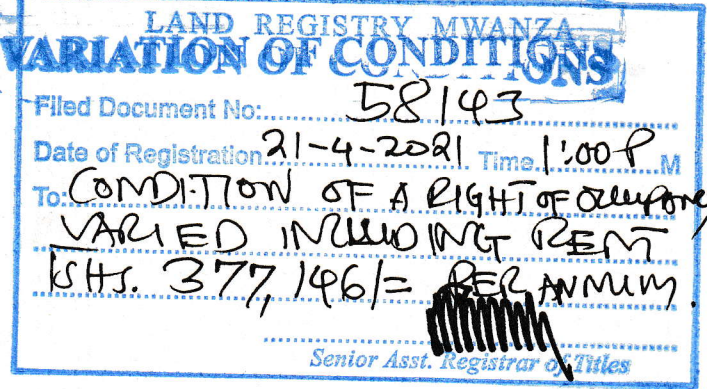 LAND REGISTRY MWANZA
VARIATION OF CONDITIONS
Filed Document No: 58143
Date of Registration 21-4-2021 Time 1:00 P M
To: CONDITION OF A RIGHT OF
VARIED INCLUDING RENT
SHS. 377,146/= PER ANNUM.
Senior Asst. Registrar of Titles